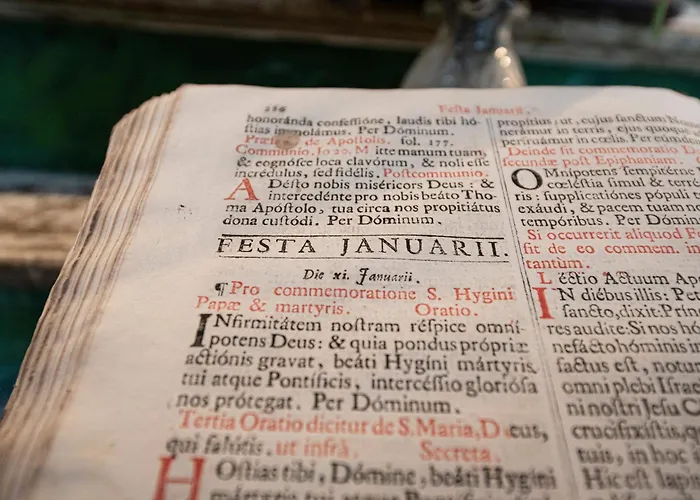 Festa Januarii.
honoránda confessióne, laudis tibi hó-
stias immolámus. Per Dóminum.
de Apostolo. fol. 177.
Communio. Jo 20. Mitte manum tuam,
& cognósce loca clavórum, & noli esse
incrédulus, sed fidélis. Postcommunio.
ADésto nobis miséricors Deus: &
intercedénte pro nobis beáto Tho-
ma Apóstolo, tua circa nos propitiátus
dona custódi. Per Dóminum.
FESTA JANUARII.
Die xi. Januarii.
¶ Pro commemoratione S. Hygini
Papæ & martyris. Oratio.
INfirmitátem nostram réspice omní-
potens Deus: & quia pondus própriæ
actiónis gravat, beáti Hygíni mártyris
tui atque Pontíficis, intercéssio gloriósa
nos prótegat. Per Dóminum.
Tertia Oratio dicitur de S. Maria, Deus,
qui salútis. ut infrà. Secreta.
HOstias tibi, Dómine, beáti Hygíni
mártyris tui atque Pontíficis
propítius: ut, cujus sanctum N
nerámur in terris, ejus quoque
perfruámur in cœlis. Per
Deinde fit commemoratio D
secundæ post Epiphaniam.
OMnípotens sempitérne
cœléstia simul & terr
ris: supplicatiónes pópuli t
exáudi, & pacem tuam n
tempóribus. Per Dómin
Si occurrerit aliquod F
fit de eo commem. in
tantùm.
Léctio Actuum Apo
IN diébus illis: Pet
sancto, dixit: Prín
res audíte: Si nos ho
nefácto hóminis in
factus est, notum
omni plebi Israë
nostri Jesu C
crucifixístis, qu
tuis, in hoc i
Hic est lapi